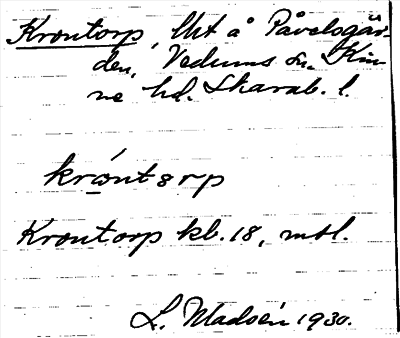 Krontorp, Utt å Påvelsgår-
den, Vedums sn. Kin-
ne hd. Skarab. l.
króntorp
Krontorp kb. 18, mtl.
L. Madsén 1930.